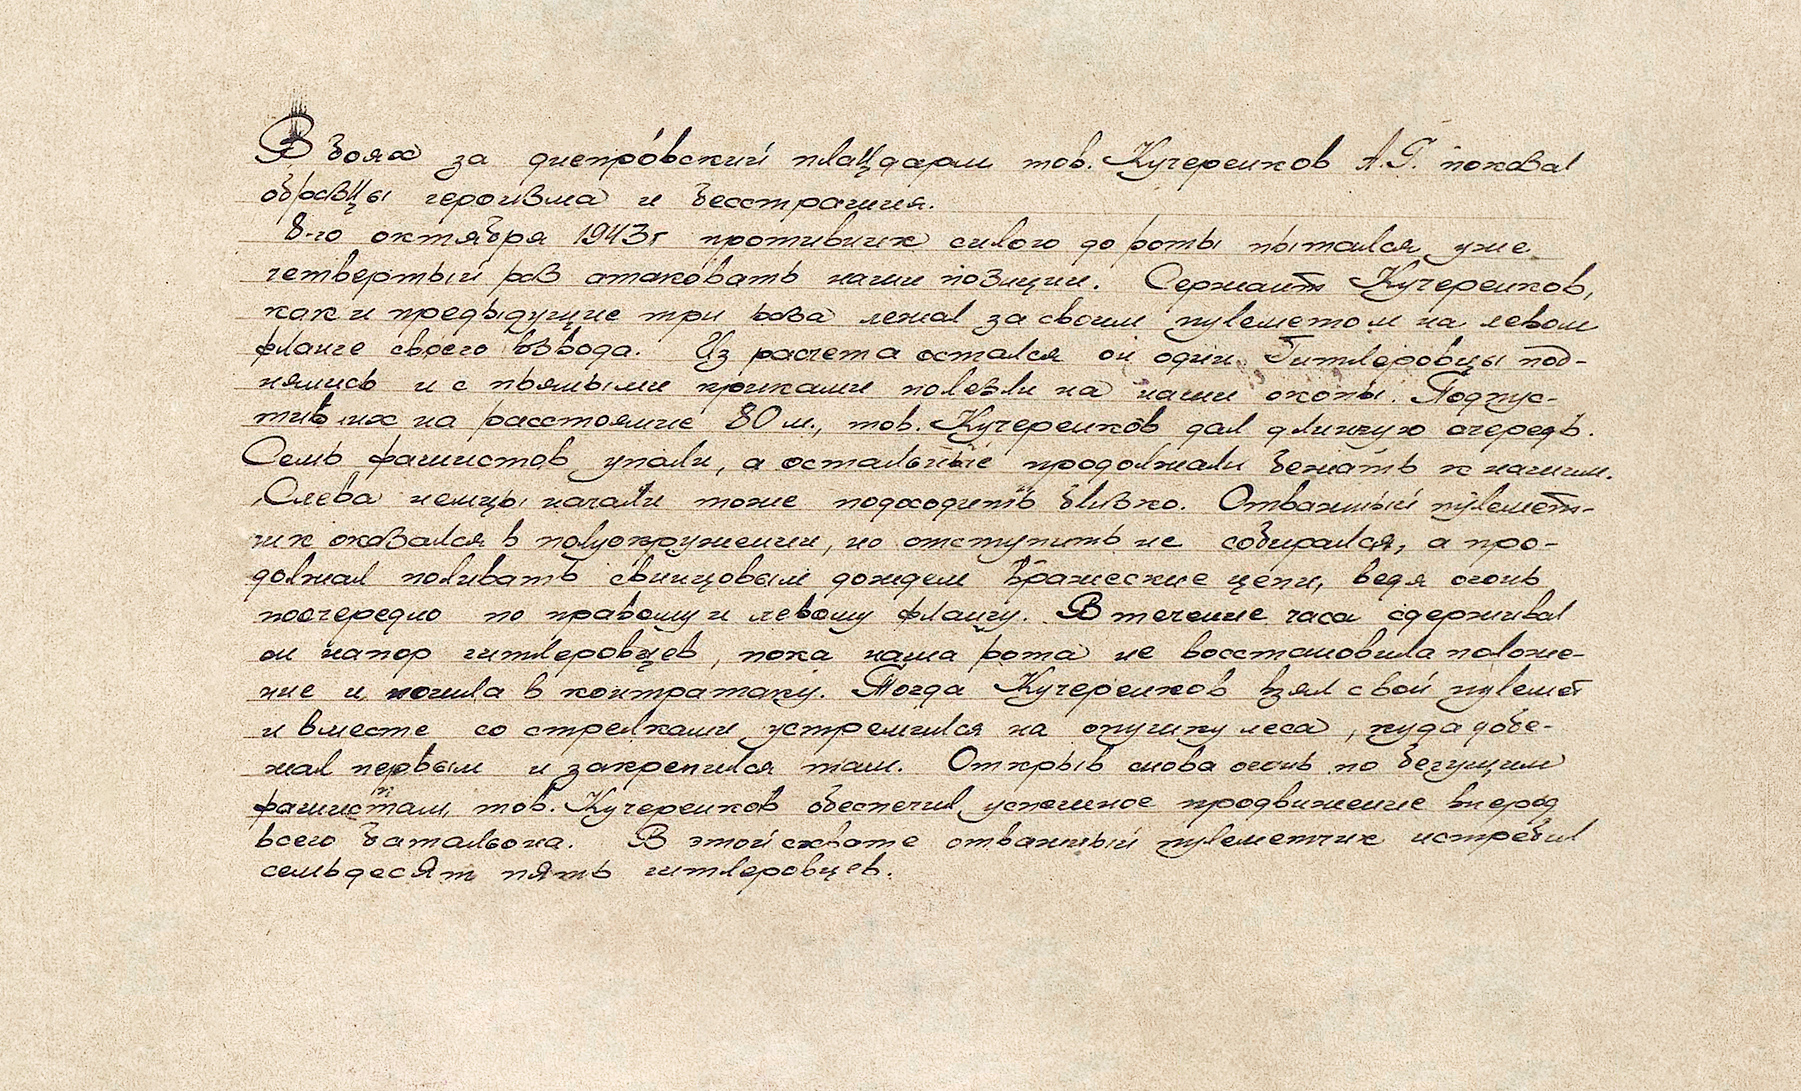 В боях за днепровский плацдарм тов. Кучеренков А.Г. показал
образцы героизма и бесстрашия.
8-го октября 1943г противник силою до роты пытался уже
четвертый раз атаковать наши позиции. Сержант Кучеренков,
как и предыдущие три раза лежал за своим пулеметом на левом
фланге своего взвода. Из расчета остался он один. Гитлеровцы под-
нялись и с пьяными криками полезли на наши окопы. Подпус-
тив их на расстояние 80 м., тов. Кучеренков дал длинную очередь.
Семь фашистов упали, а остальные продолжали бежать к нашим.
Слева немцы начали тоже подходить близко. Отважный пулемет-
чик оказался в полуокружении, но отступить не собирался, а про-
должал поливать свинцовым дождем вражеские цепи, ведя огонь
поочередно по правому и левому флангу. В течение часа сдерживал
он напор гитлеровцев, пока наша рота не восстановила положе-
ние и пошла в контратаку. Тогда Кучеренков взял свой пулемет
и вместе со стрелками устремился на опушку леса, куда добе-
жал первым и закрепился там. Открыв снова огонь по бегущим
фашистам, тов. Кучеренков обеспечил успешное продвижение вперед
всего батальона. В этой схватке отважный пулеметчик истребил
семьдесят пять гитлеровцев.